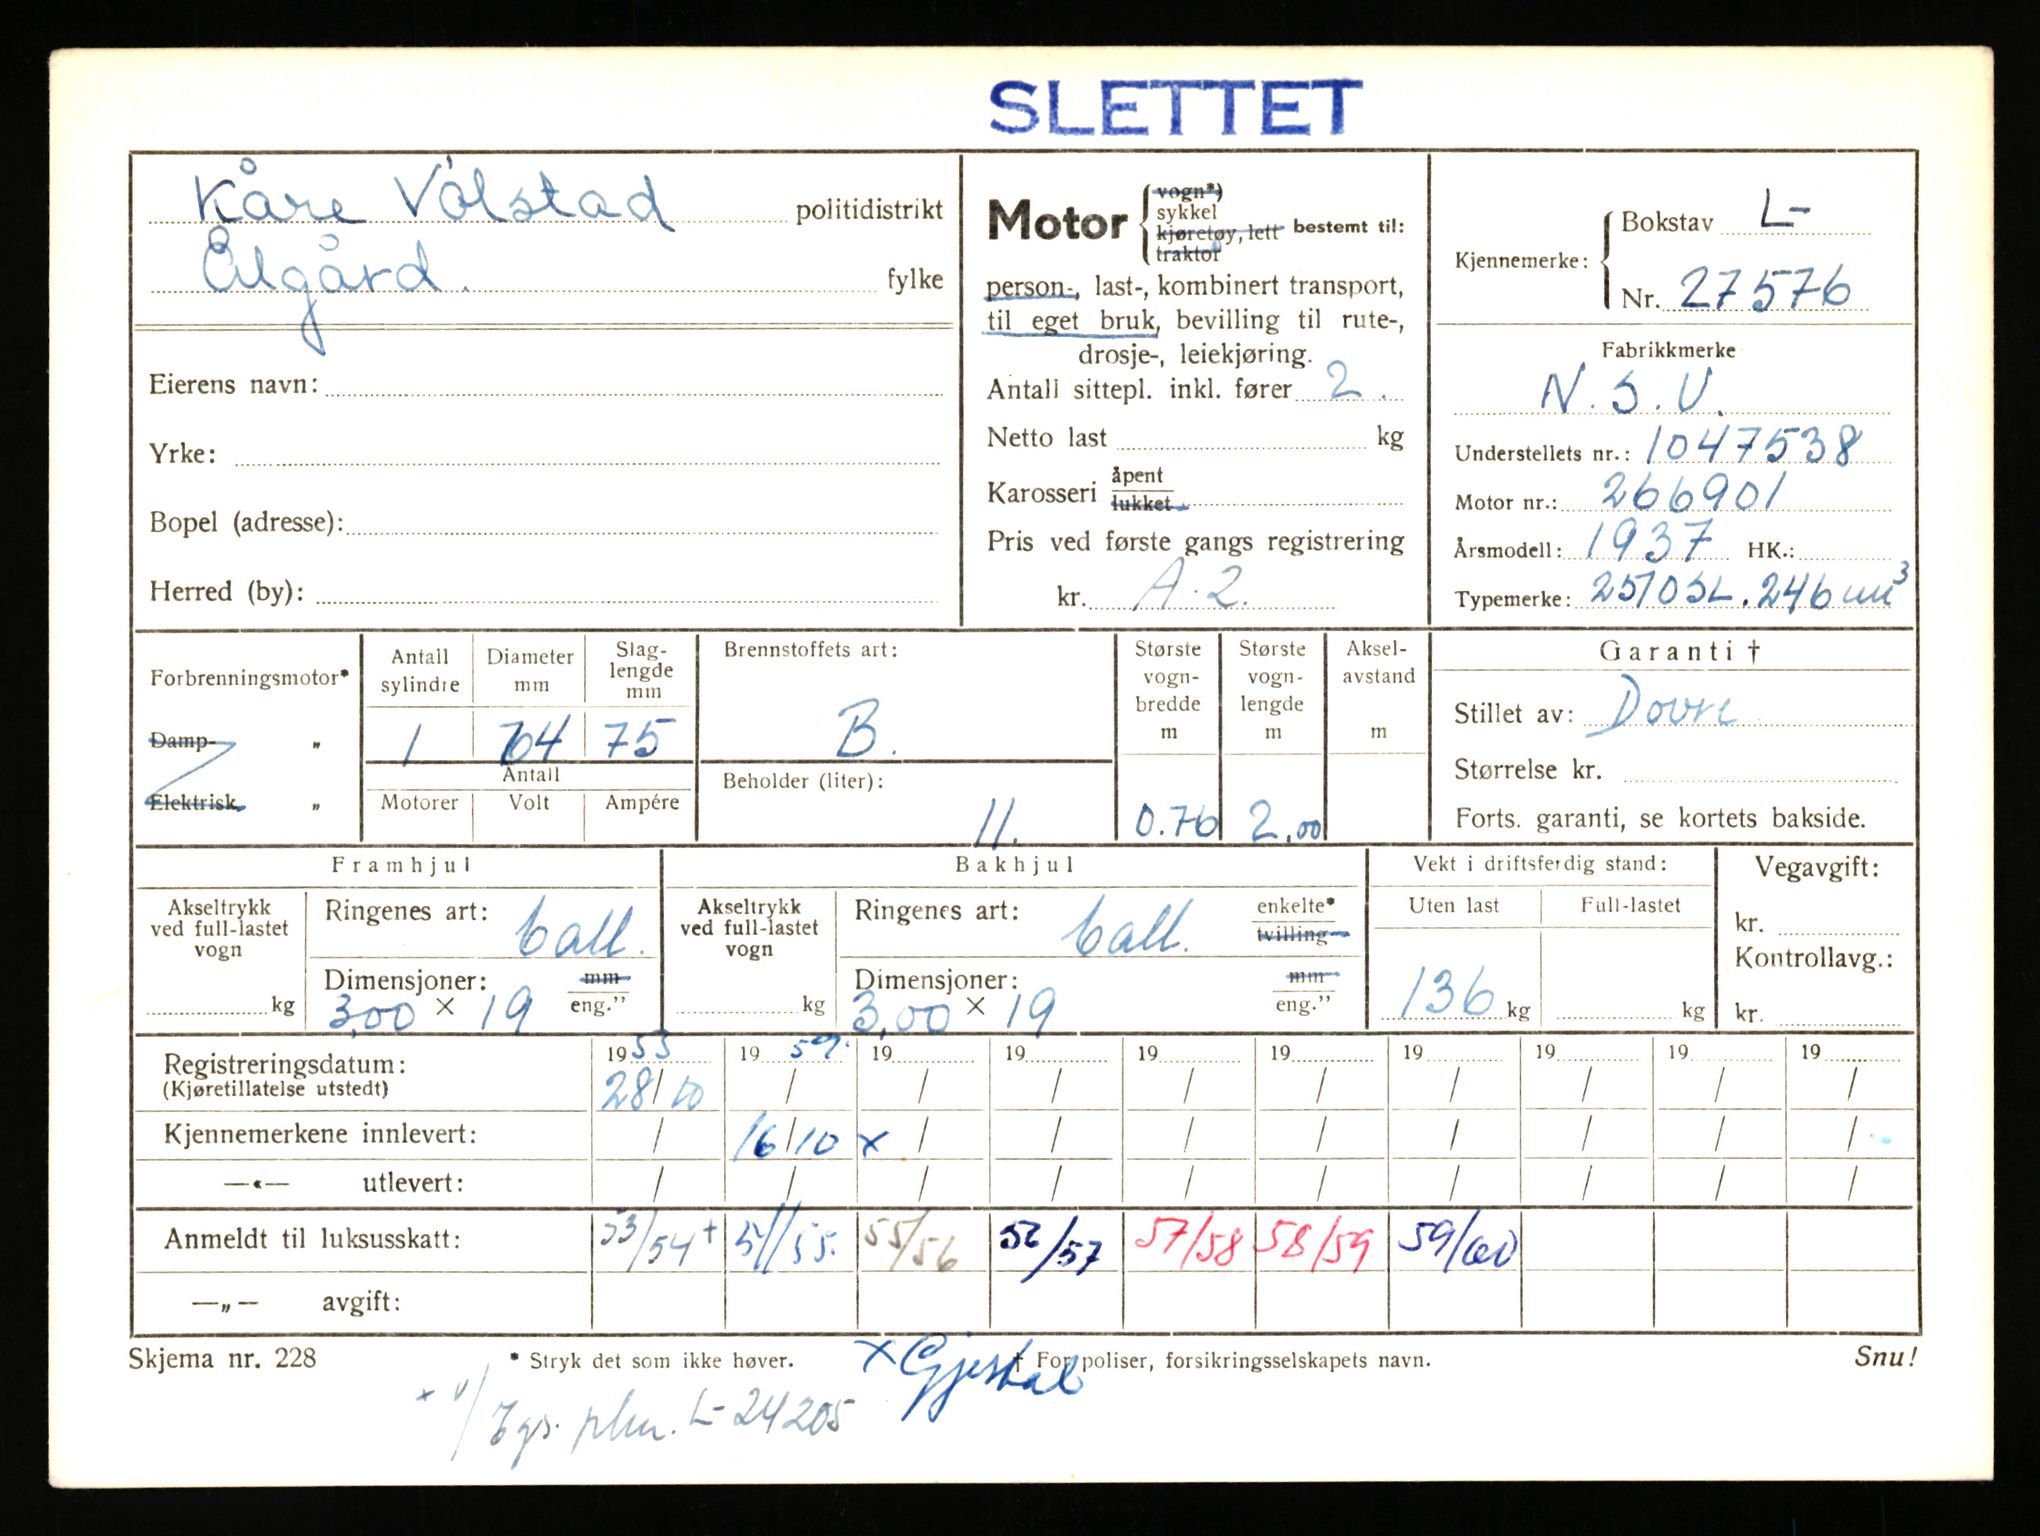 SLETTET
Kåre Vølstad politidistrikt
Ålgård. fylke
Eierens navn:
Yrke:
Bopel (adresse):
Herred (by):
Motor { vogn*) sykkel kjøretøy, lett traktor bestemt til:
person-, last-, kombinert transport,
til eget bruk, bevilling til rute-,
drosje-, leiekjøring.
Antall sittepl. inkl. fører 2.
Netto last kg
Karosseri åpent lukket
Pris ved første gangs registrering
kr. A.2.
Kjennemerke: { Bokstav L-
Nr. 27576
Fabrikkmerke
N.S.U.
Understellets nr.: 1047538
Motor nr.: 266901
Årsmodell: 1937 HK.:
Typemerke: 251OSL. 246
Forbrenningsmotor*
Damp- „
Elektrisk „
Antall sylindre Diameter mm Slag-lengde mm
1 64 75
Antall
Motorer Volt Ampére
Brennstoffets art:
B.
Beholder (liter):
11.
Største vogn-bredde m
0.76
Største vogn-lengde m
2.00
Aksel-avstand m
Garanti †
Stillet av: Dovre
Størrelse kr.
Forts. garanti, se kortets bakside.
Framhjul
Akseltrykk ved full-lastet vogn
kg
Ringenes art: ball.
Dimensjoner: mm
3,00 × 19 eng.”
Bakhjul
Akseltrykk ved full-lastet vogn
kg
Ringenes art: ball. enkelte* tvilling
Dimensjoner: mm
3,00 × 19 eng.”
Vekt i driftsferdig stand:
Uten last Full-lastet
136 kg kg
Vegavgift:
kr.
Kontrollavg.:
kr.
Registreringsdatum: 1953 1959. 19 19 19 19 19 19 19 19
(Kjøretillatelse utstedt) 28/10 / / / / / / / / /
Kjennemerkene innlevert: / 16/10 x / / / / / / / /
—«— utlevert: / / / / / / / / /
Anmeldt til luksusskatt: 53/54+ 54/55. 55/56 56/57 57/58 58/59 59/60
—„— avgift:
Skjema nr. 228 * Stryk det som ikke høver. x Gjestal † For poliser, forsikringsselskapets navn. Snu!
+ v/ L-24205